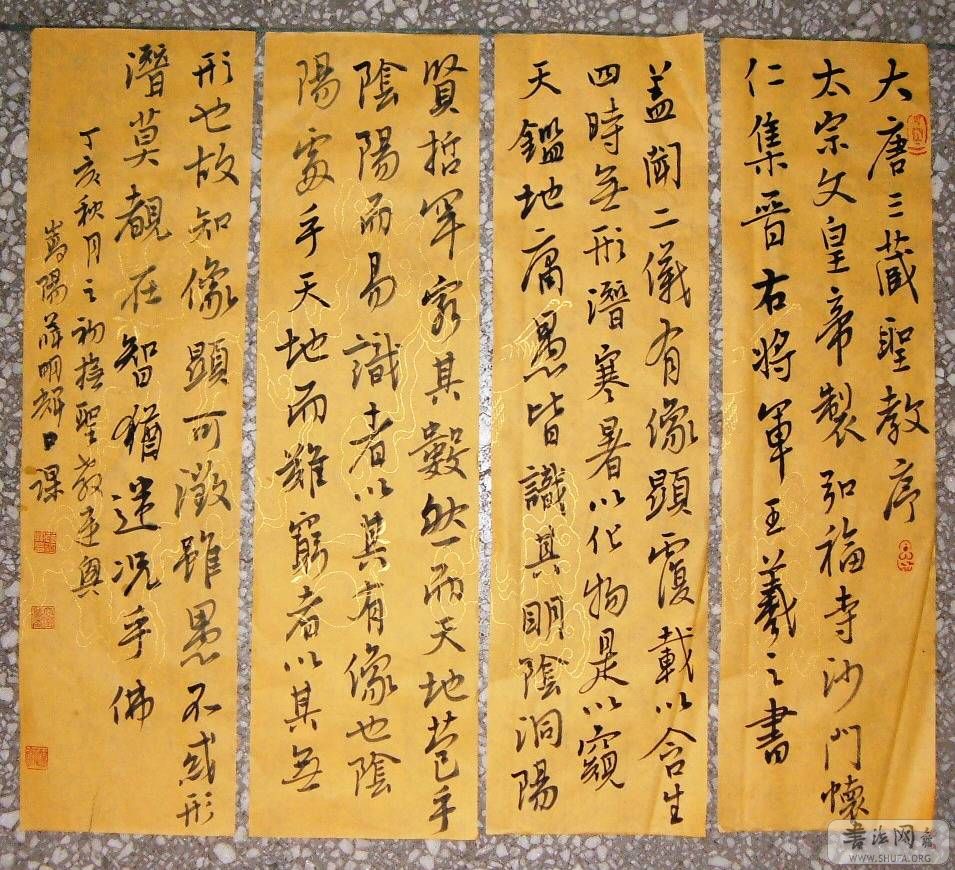 大唐三藏聖教序
太宗文皇帝製弘福寺沙門懷
仁集晉右將軍王羲之書
盖聞二儀有像顯覆載以含生
四時無形潛寒暑以化物是以窺
天鑑地庸愚皆識其明陰洞陽
賢哲罕窮其數然而天地苞乎
陰陽而易識者以其有像也陰
陽處乎天地而難窮者以其無
形也故知像顯可徵雖愚不惑形
潛莫覩在智猶迷況乎佛
丁亥秋月之初聖教
嵩陽薛明輝日課
書法网
WWW.SHUFA.ORG